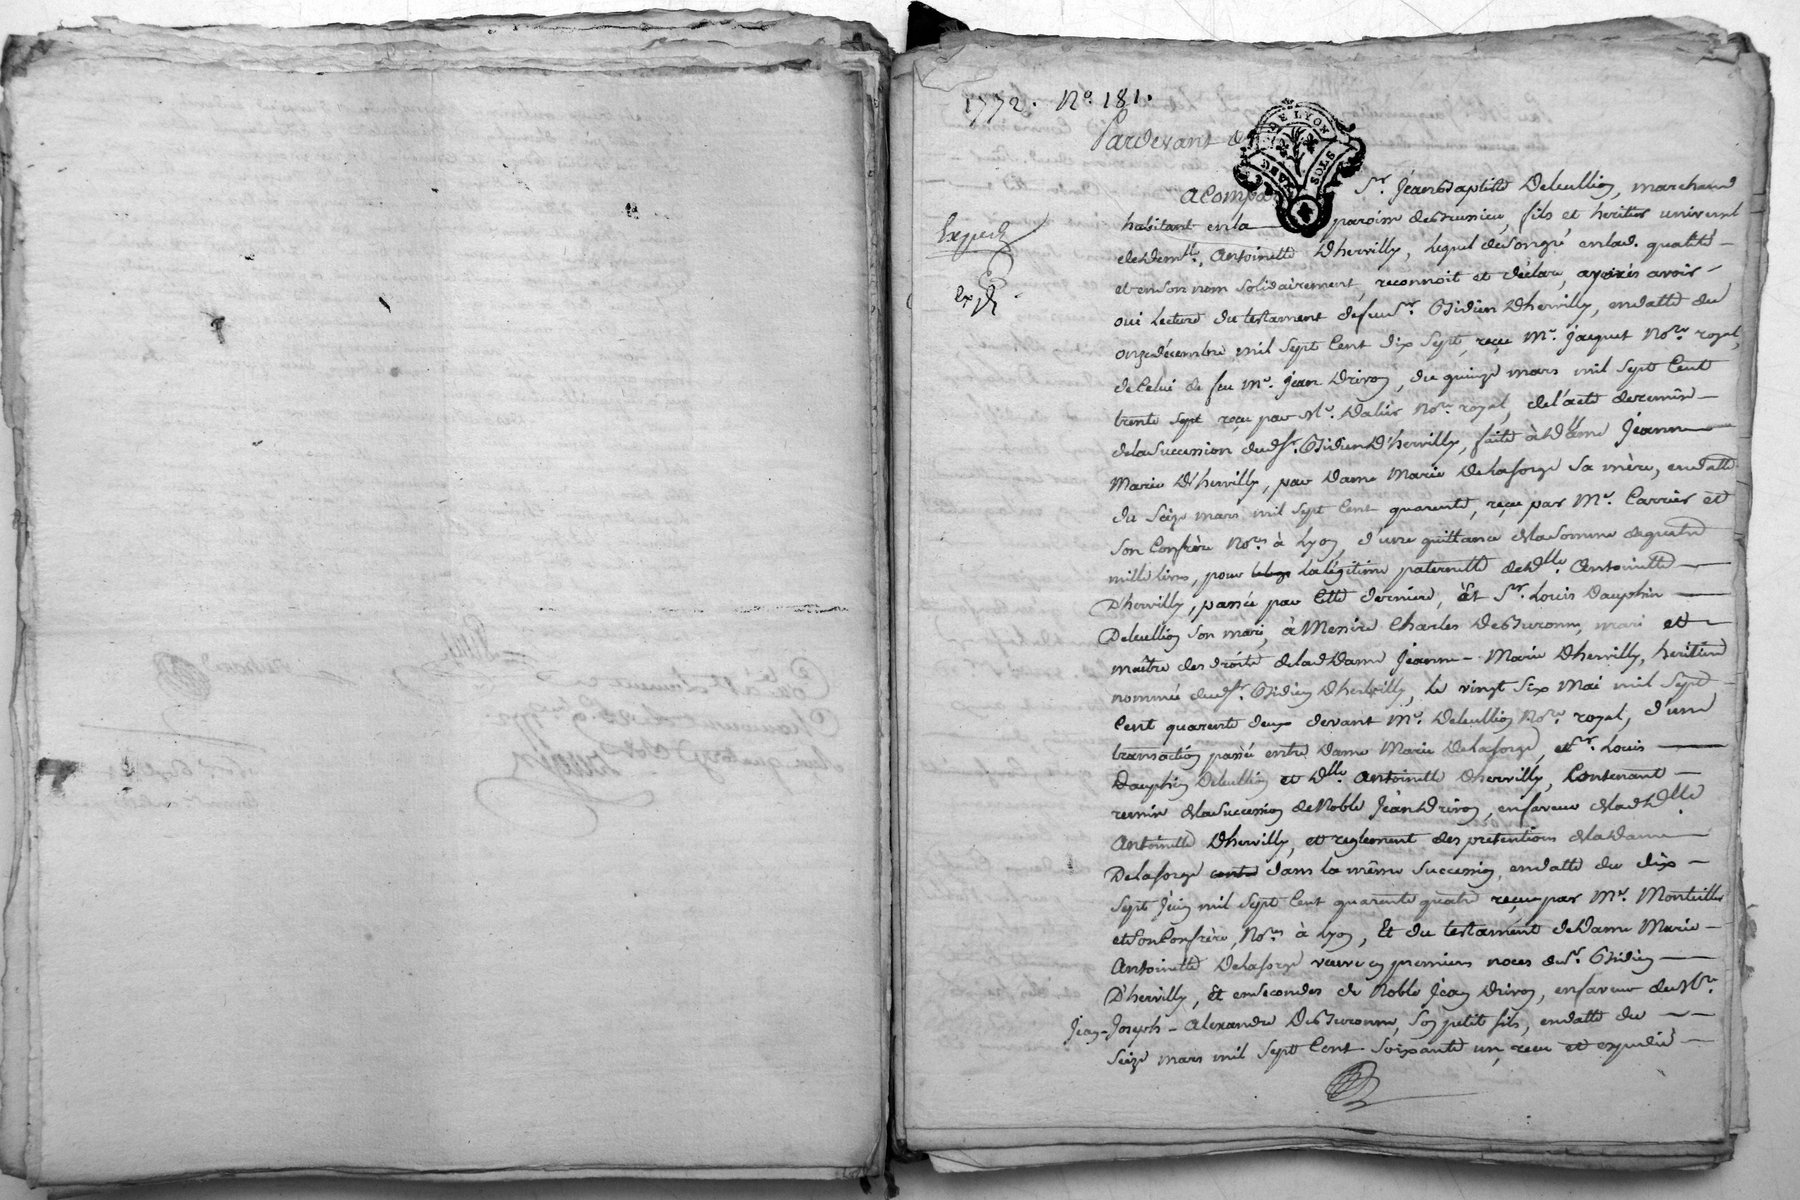 1772. No. 181.
Pardevant
DE LYON
DEUX SOLS
a Compa Sr. Jean Baptiste Deleullion, marchand
habitant en la paroisse de Brunieu, fils et heritier universel
de Demlle. Antoinette Dhervilly, lequel de son gré, en lad. qualité
et en son nom solidairement, reconnoit et déclare, aprés avoir
Exped.
oui lecture du testament de feu Sr. Dhervilly, en datte du
onze décembre mil Sept Cent dix Sept, reçu Me. Jacquet Nore. royal,
de Celui de feu Me. Jean Drivon, du quinze mars mil sept Cent
trente sept reçu par Me. Dalier Nore. royal, de l'acte de remise
de la Succession dud. Sr. D'hervilly, faite à Dame Jeanne
Marie D'hervilly, par Dame Marie Delaforge sa mère, en datte
du Seize mars mil Sept Cent quarente, reçu par Me. Carrier et
son Confrère Nores. à Lyon, d'une quittance de la Somme de quatre
mille livres, pour la légitime paternelle de Dlle. Antoinette
Dhervilly, passée par Cette dernière, et Sr. Louis Dauphin
Deleullion son mari, à Messire Charles Debturonne, mari et
maître des droits de lad. Dame Jeanne-Marie Dhervilly, heritiere
nommée dud. Sr. Dhervilly, le vingt Six Mai mil Sept
Cent quarente deux devant Me. Deleullion Nore. royal, d'une
transaction passée entre Dame Marie Delaforge, et Sr. Louis
Dauphin Deleullion et Dlle. Antoinette Dhervilly, Contenant
remise de la Succession de Noble Jean Drivon, en faveur de lad. Dlle.
Antoinette Dhervilly, et reglement des prétentions de la Dame
Delaforge dans la même Succession, en datte du dix
Sept Juin mil Sept Cent quarente quatre reçue par Me. Montvillier
et Son Confrère, Nores. à Lyon, Et du testament de Dame Marie
Antoinette Delaforge veuve en premiers noces de Sr.
D'hervilly, Et en Secondes de Noble Jean Drivon, en faveur de Mr.
Jean-Joseph-Alexandre Debturonne, Son petit fils, en datte du
Seize mars mil Sept Cent Soixante un, reçu et expedié